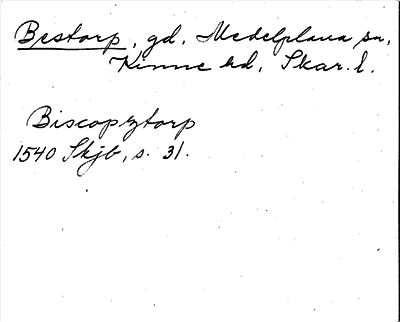 Bestorp, gd, Medelplana sn,
Kinne hd, Skar. l.
Biscopztorp
1540 Skjb, s. 31.